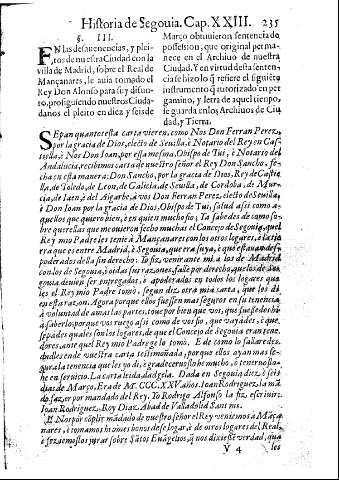 Historia de Segouia. Cap. XXIII. 235
§. III.
EN las desauenencias, y plei-
tos de nuestra Ciudad con la
villa de Madrid, sobre el Real de
Mançanares, le auia tomado el
Rey Don Alonso para su y difun-
to, prosiguiendo nuestros Ciuda-
danos el pleito en diez y seis de
Março obtuuieron sentencia de
possession, que original perma-
nece en el Archiuo de nuestra
Ciudad. Y en virtud desta senten-
cia se hizo lo q̃ refiere el siguiẽte
instrumento autorizado en per-
gamino, y letra de aquel tiempo,
se guarda en los Archiuos de Ciu-
dad, y Tierra.
SEpan quantos esta carta vieren, como Nos Don Ferran Perez,
por la gracia de Dios, electo de Seuilla, è Notario del Rey en Cas-
tiella, è Nos Don Ioan, por essa mesma, Obispo de Tui, è Notario del
Andalucia, recibimos carta de nuestro señor el Rey Don Sancho, fe-
cha en esta manera: Don Sancho, por la gracia de Dios, Rey de Castie-
lla, de Toledo, de Leon, de Galicia, de Seuilla, de Cordoba, de Mur-
cia, de Iaen, è del Algarbe, à vos Don Ferran Perez, electo de Seuilla,
è Don Ioan por la gracia de Dios, Obispo de Tui, salud assi como a-
quellos que quiero bien, è en quien mucho fio; Ya sabedes de como so-
bre querellas que me ouieron fecho muchas el Concejo de Segouia, que el
Rey mio Padre les tenie à Mançanares con los otros logares, è la sie-
rra que es entre Madrid, è Segouia, que era suya, è que estauan des-
poderados della sin derecho: Io fiz venir ante mi à los de Madrid
con los de Segouia, è oidas sus razones, falle por derecho, que los de Se-
gouia deuien ser entregados, è apoderados en todos los logares que
les el Rey mio Padre tomò, segun diz otra mia carta, que les di
en esta raçon. Agora porque ellos fuessen mas seguros en su tenencia
à voluntad de amas las partes, toue por bien que vos, que fuessedes bõ
à saberlo; porque vos ruego assi como de vos fio, que vayades, è que
sepades quales son los logares, de que el Concejo de Segouia eran tene-
dores, ante quel Rey mio Padre ge lo tomò. E de como lo fallaredes,
dadles ende vuestra carta testimoñada, porque ellos ayan mas segu-
ra la tenencia que les yo di, è gradecervos lo he mucho, è tenervos lo
he en seruicio. La carta leida dadgela. Dada en Segouia diez, è seis
dias de Março, Era de M. CCC. XXV. años. Ioan Rodriguez, la mã-
dò, fazer por mandado del Rey. Io Rodrigo Alfonso la fiz escriuir.
Ioan Rodriguez. Roy Diaz. Abad de Valladolid Santius.
E Nos por cõplir mãdado de nuestro señor el Rey veniemos à Mãça-
nares, è tomamos homes bonos de esse logar, è de otros logares del Real,
è fiziemoslos jurar sobre Sãtos Euãgelios, q̃ nos dixiessẽ verdad, que
V 4 les